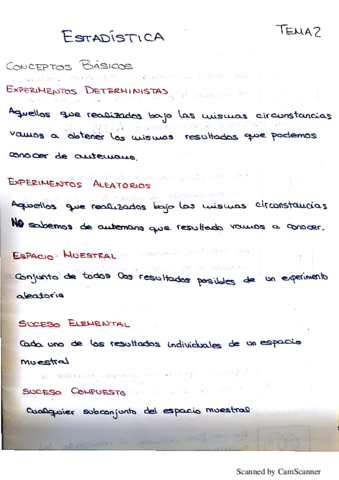 ESTADÍSTICA
TEMA 2
CONCEPTOS BÁSICOS
EXPERIMENTOS DETERMINISTAS
Aquellos que realizados bajo las mismas circunstancias
vamos a obtener los mismos resultados que podemos
conocer de antemano.
EXPERIMENTOS ALEATORIOS
Aquellos que realizados bajo las mismas circunstancias
NO sabemos de antemano que resultado vamos a conocer.
ESPACIO MUESTRAL
Conjunto de todos los resultados posibles de un experimento
aleatorio
SUCESO ELEMENTAL
Cada uno de los resultados individuales de un espacio
muestral
SUCESO COMPUESTO
Cualquier subconjunto del espacio muestral
Scanned by CamScanner